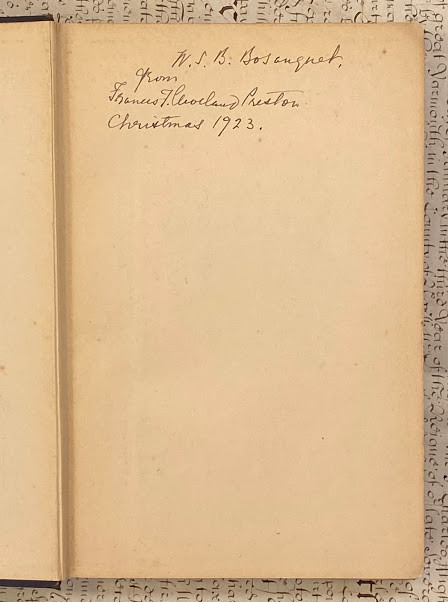 W. S. B. Bosanquet.
from
Frances F. Cleveland Preston
Christmas 1923.